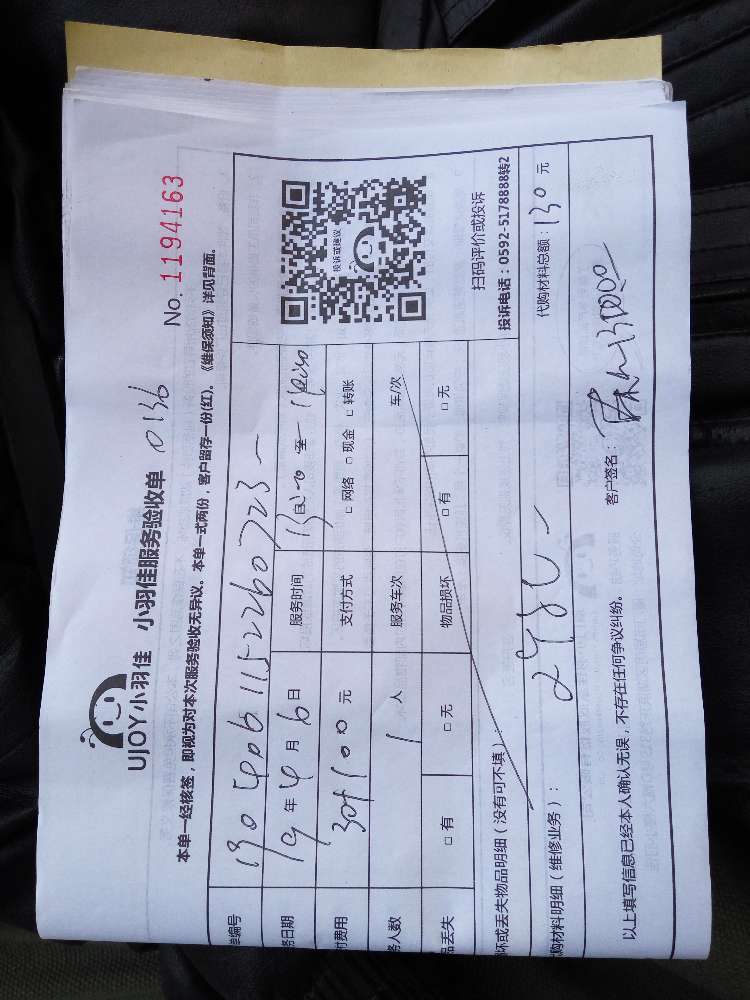 UJOY小羽佳 小羽佳服务验收单 0136
No. 1194163
本单一经核签，即视为对本次服务验收无异议。本单一式两份，客户留存一份(红)。《维保须知》详见背面。
编号
日期 19 年 4 月 6 日 服务时间 至
付费用 30+100 元 支付方式 □ 网络 □ 现金 □ 转账
务人数 1 人 服务车次 车/次
品丢失 □ 有 □ 无 物品损坏 □ 有 □ 无
投诉或建议
扫码评价或投诉
投诉电话：0592-5178888转2
坏或丢失物品明细（没有可不填）：
购材料明细（维修业务）： 代购材料总额：130 元
以上填写信息已经本人确认无误，不存在任何争议纠纷。 客户签名：